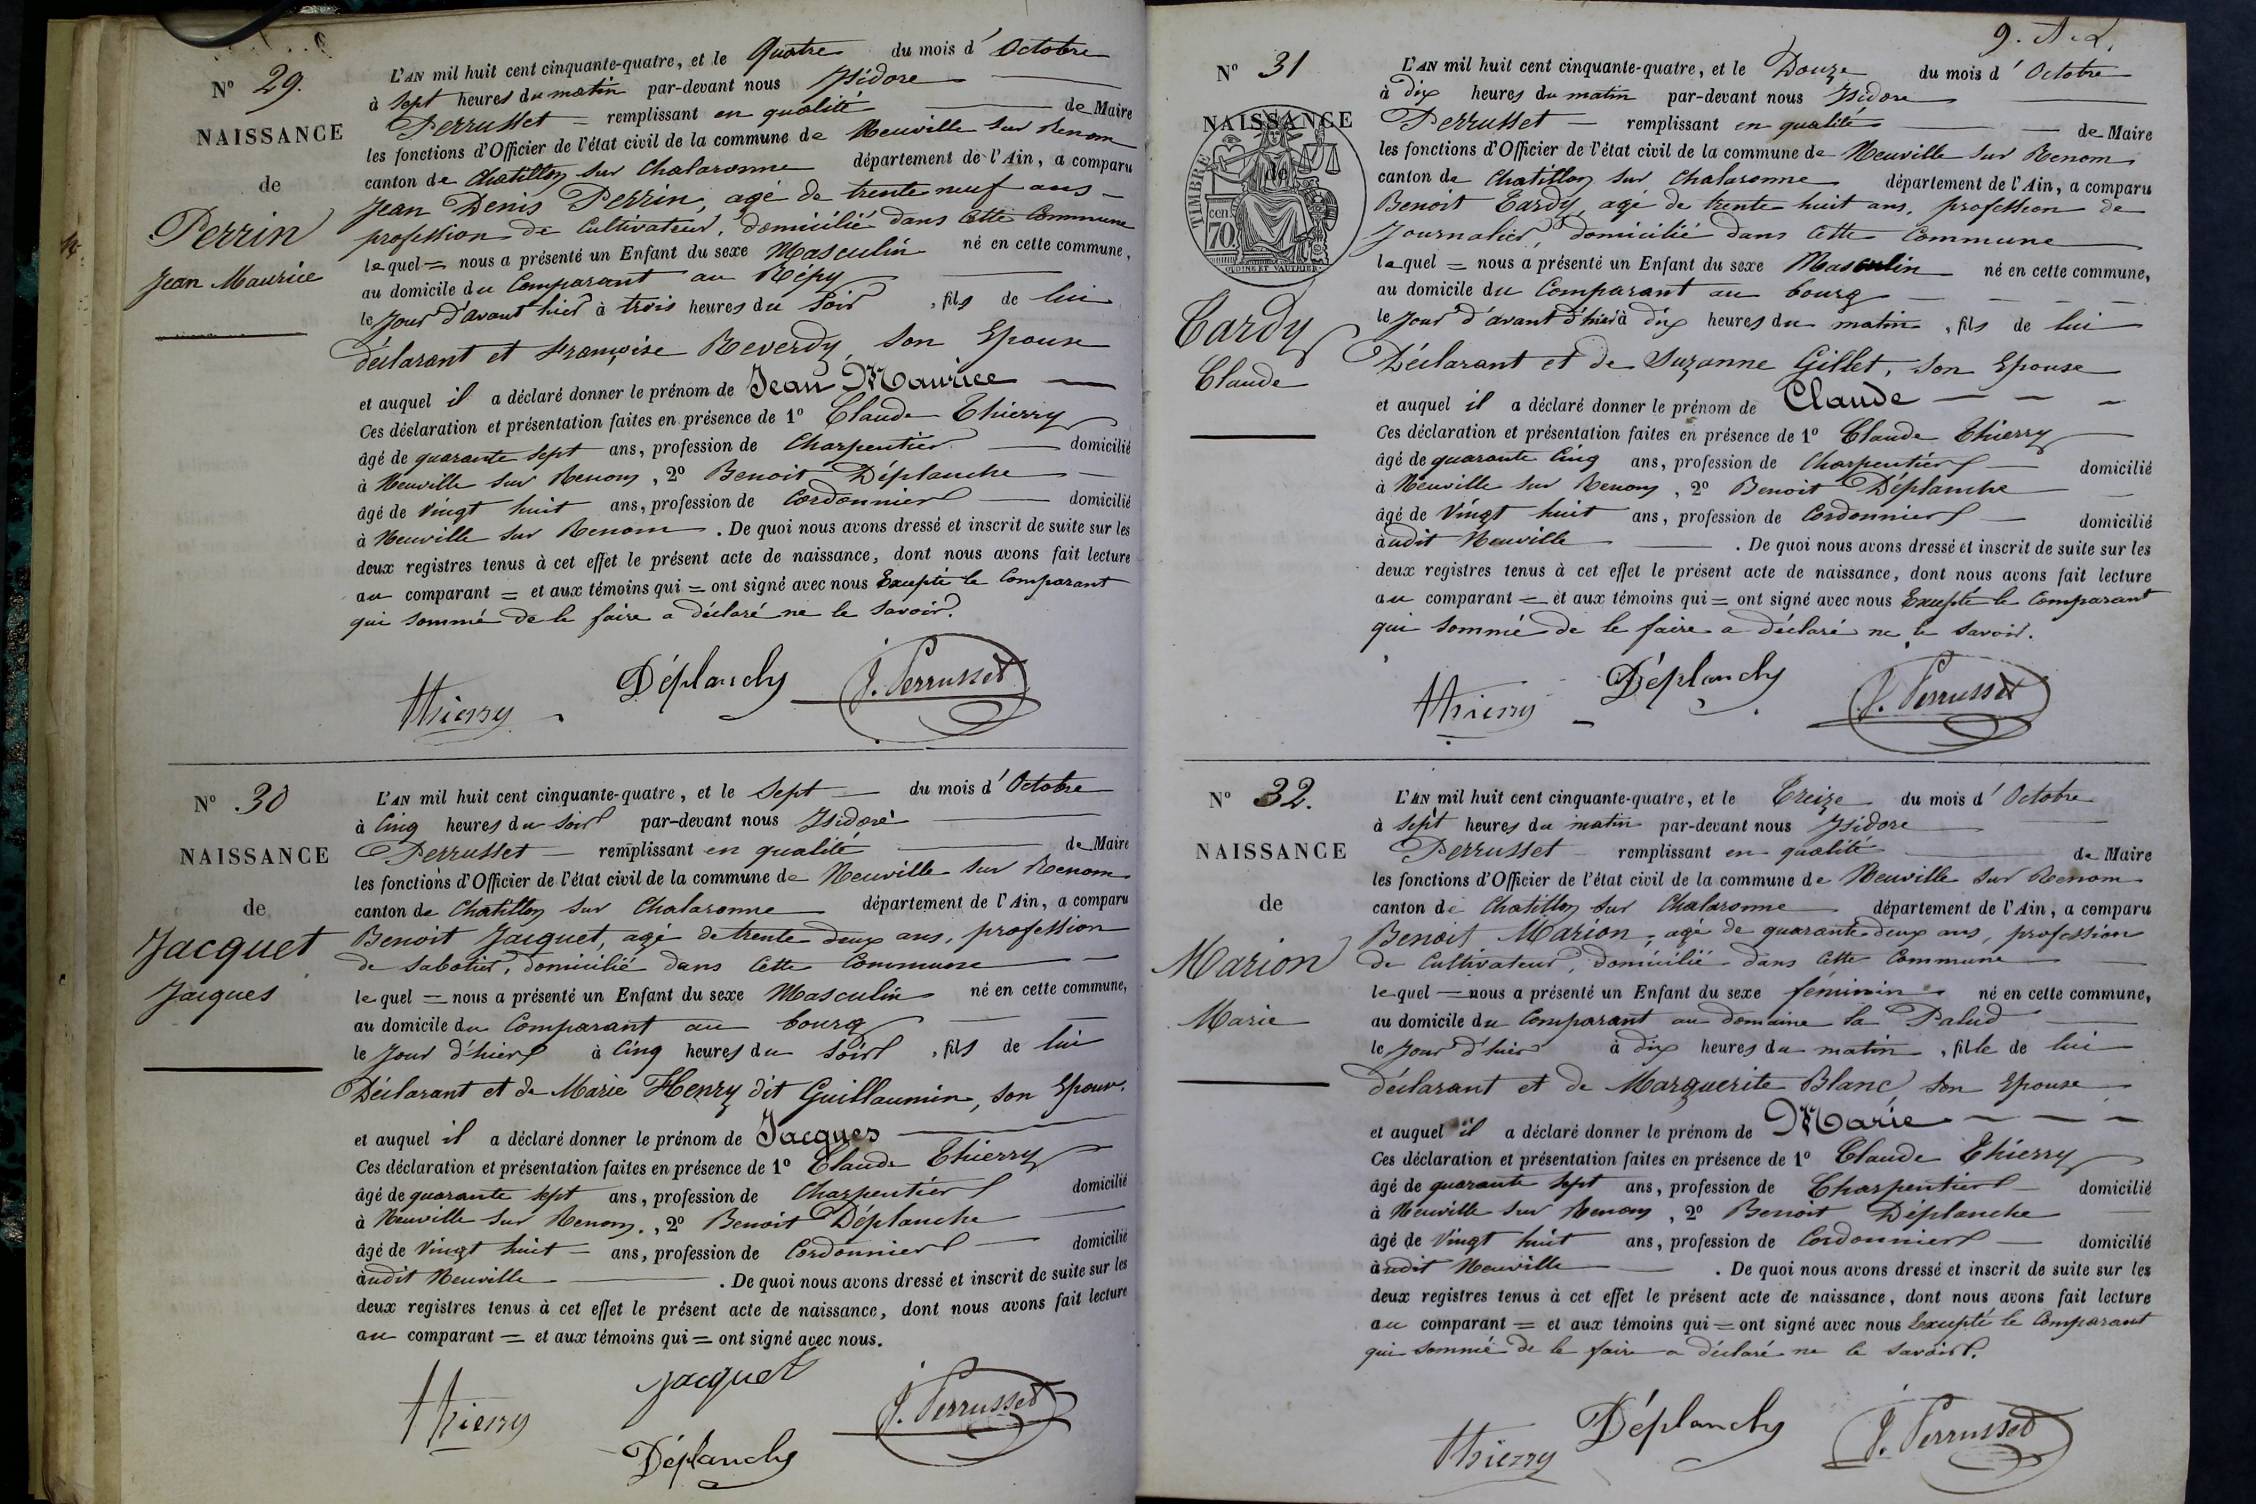 Nº 29.
NAISSANCE
de
Perrin
Jean Maurice
L'AN mil huit cent cinquante-quatre, et le Quatre du mois d' Octobre
à sept heures du matin par-devant nous Isidore
Perrusset = remplissant en qualité de Maire
les fonctions d'Officier de l'état civil de la commune de Neuville sur Renom
canton de Chatillon sur Chalaronne département de l'Ain, a comparu
Jean Denis Perrin, agé de trente neuf ans
profession de Cultivateur, domicilié dans Cette Commune
lequel = nous a présenté un Enfant du sexe Masculin né en cette commune,
au domicile du Comparant au Répy
le Jour d'avant hier à trois heures du soir, fils de lui
déclarant et Françoise Reverdy, son Epouse
et auquel il a déclaré donner le prénom de Jean Maurice
Ces déclaration et présentation faites en présence de 1º Claude Thierry
âgé de quarante sept ans, profession de Charpentier domicilié
à Neuville sur Renom, 2º Benoit Déplanche
âgé de Vingt huit ans, profession de Cordonnier domicilié
à Neuville sur Renom. De quoi nous avons dressé et inscrit de suite sur les
deux registres tenus à cet effet le présent acte de naissance, dont nous avons fait lecture
au comparant = et aux témoins qui = ont signé avec nous Excepté le Comparant
qui sommé de le faire a déclaré ne le savoir.
Thierry Déplanche J. Perrusset
Nº 30
NAISSANCE
de
Jacquet
Jacques
L'AN mil huit cent cinquante-quatre, et le Sept du mois d' Octobre
à Cinq heures du soir par-devant nous Isidore
Perrusset remplissant en qualité de Maire
les fonctions d'Officier de l'état civil de la commune de Neuville sur Renom
canton de Chatillon sur Chalaronne département de l'Ain, a comparu
Benoit Jacquet, agé de trente deux ans, profession
de sabotier, domicilié dans Cette Commune
lequel = nous a présenté un Enfant du sexe Masculin né en cette commune,
au domicile du Comparant au bourg
le Jour d'hier à Cinq heures du soir, fils de lui
Déclarant et de Marie Henry dit Guillaumin, son Epouse
et auquel il a déclaré donner le prénom de Jacques
Ces déclaration et présentation faites en présence de 1º Claude Thierry
âgé de quarante sept ans, profession de Charpentier domicilié
à Neuville sur Renom, 2º Benoit Déplanche
âgé de Vingt huit = ans, profession de Cordonnier domicilié
àudit Neuville. De quoi nous avons dressé et inscrit de suite sur les
deux registres tenus à cet effet le présent acte de naissance, dont nous avons fait lecture
au comparant = et aux témoins qui = ont signé avec nous.
Thierry Jacquet J. Perrusset
Déplanche
9.
Nº 31
NAISSANCE
de
TIMBRE
cen
70.
OUDINE ET VAUTHIER
Tardy
Claude
L'AN mil huit cent cinquante-quatre, et le Douze du mois d' Octobre
à dix heures du matin par-devant nous Isidore
Perrusset remplissant en qualité de Maire
les fonctions d'Officier de l'état civil de la commune de Neuville sur Renom
canton de Chatillon sur Chalaronne département de l'Ain, a comparu
Benoit Tardy, agé de trente huit ans, profession de
Journalier, domicilié dans Cette Commune
lequel = nous a présenté un Enfant du sexe Masculin né en cette commune,
au domicile du Comparant au bourg
le Jour d'avant d'hier à dix heures du matin, fils de lui
Déclarant et de Suzanne Gillet, son Epouse
et auquel il a déclaré donner le prénom de Claude
Ces déclaration et présentation faites en présence de 1º Claude Thierry
âgé de quarante Cinq ans, profession de Charpentier domicilié
à Neuville sur Renom, 2º Benoit Déplanche
âgé de Vingt huit ans, profession de Cordonnier domicilié
àudit Neuville. De quoi nous avons dressé et inscrit de suite sur les
deux registres tenus à cet effet le présent acte de naissance, dont nous avons fait lecture
au comparant = et aux témoins qui = ont signé avec nous Excepté le Comparant
qui sommé de le faire a déclaré ne le savoir.
Thierry Déplanche J. Perrusset
Nº 32.
NAISSANCE
de
Marion
Marie
L'AN mil huit cent cinquante-quatre, et le Treize du mois d' Octobre
à sept heures du matin par-devant nous Isidore
Perrusset remplissant en qualité de Maire
les fonctions d'Officier de l'état civil de la commune de Neuville sur Renom
canton de Chatillon sur Chalaronne département de l'Ain, a comparu
Benoit Marion, agé de quarante deux ans, profession
de Cultivateur, domicilié dans Cette Commune
lequel = nous a présenté un Enfant du sexe féminin né en cette commune,
au domicile du Comparant au domaine la Palud
le Jour d'hier à dix heures du matin, fille de lui
déclarant et de Marguerite Blanc, son Epouse
et auquel il a déclaré donner le prénom de Marie
Ces déclaration et présentation faites en présence de 1º Claude Thierry
âgé de quarante sept ans, profession de Charpentier domicilié
à Neuville sur Renom, 2º Benoit Déplanche
âgé de Vingt huit ans, profession de Cordonnier domicilié
àudit Neuville. De quoi nous avons dressé et inscrit de suite sur les
deux registres tenus à cet effet le présent acte de naissance, dont nous avons fait lecture
au comparant = et aux témoins qui = ont signé avec nous Excepté le Comparant
qui sommé de le faire a déclaré ne le savoir.
Thierry Déplanche J. Perrusset